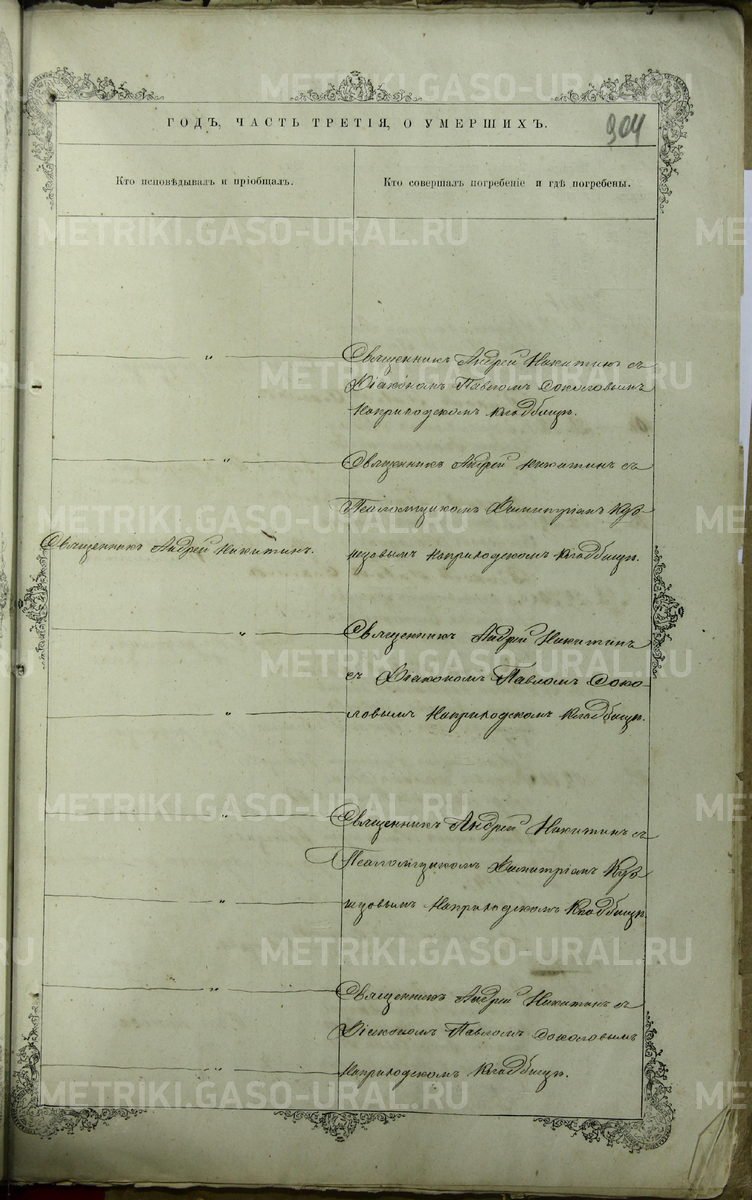 304
ГОДЪ, ЧАСТЬ ТРЕТІЯ, О УМЕРШИХЪ.
Кто исповѣдывалъ и пріобщалъ.
Кто совершалъ погребеніе и гдѣ погребены.
„
Священникъ Андрей Никитинъ съ
Діакономъ Павломъ Соколовымъ
На приходскомъ кладбищѣ.
„
Священникъ Андрей Никитинъ съ
Псаломщикомъ Димитріемъ Кув
Священникъ Андрей Никитинъ.
шовымъ На приходскомъ Кладбищѣ.
„
Священникъ Андрей Никитинъ
съ Діакономъ Павломъ Соко
„
ловымъ На приходскомъ Кладбищѣ.
„
Священникъ Андрей Никитинъ съ
Псаломщикомъ Димитріемъ
„
На приходскомъ Кладбищѣ
„
Священникъ Андрей Никитинъ съ
Діакономъ Павломъ Соколовымъ
На приходскомъ Кладбищѣ.
METRIKI.GASO-URAL.RU